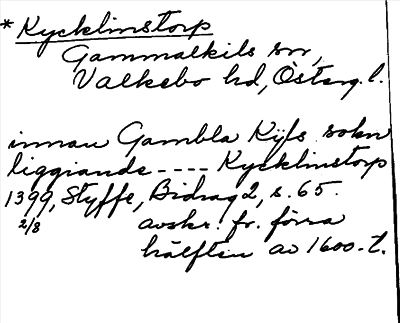 * Kycklinstorp
Gammalkils sn,
Valkebo hd, Österg. l.
innan Gambla Kijls sokn
liggiande ---- Kycklinstorp
1399, Styffe, Bidrag 2, s. 65.
2/8 avskr. fr. förra
hälften av 1600-t.